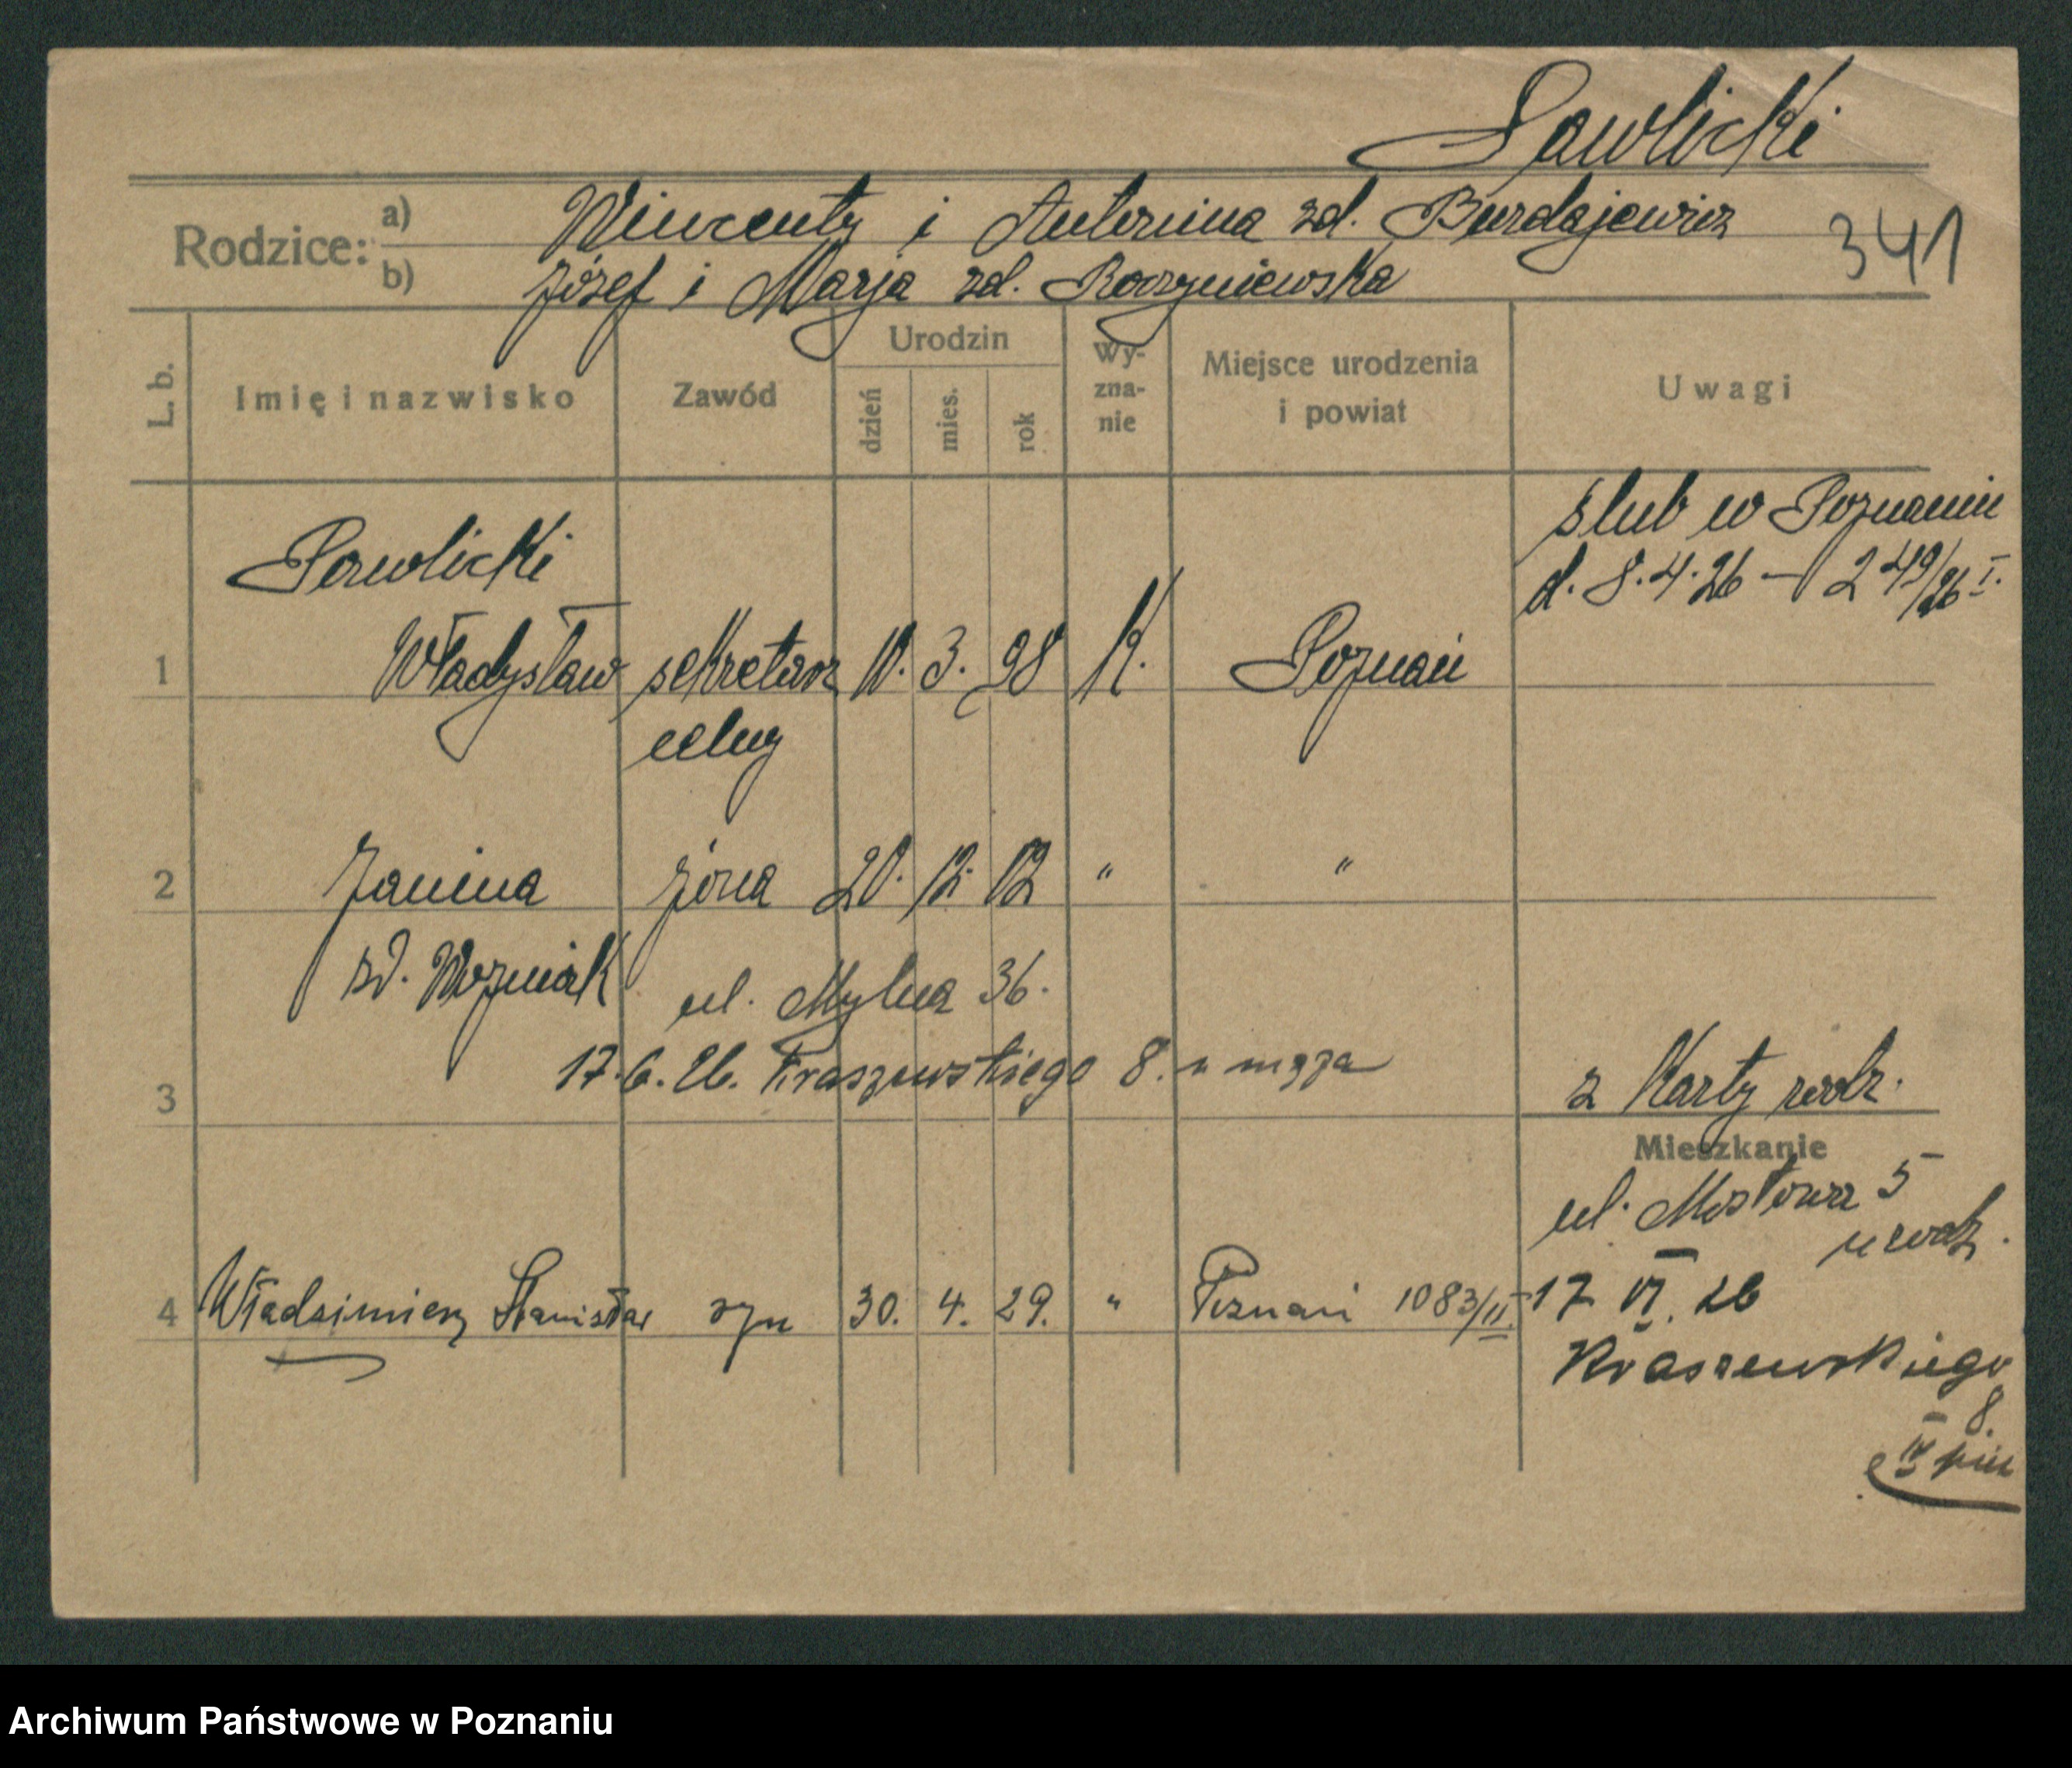 Pawlicki
Rodzice: a) Wincenty i Antonina zd. Burdajewicz
b) Józef i Marja zd. Roczyniewska
341
L. b. Imię i nazwisko Zawód Urodzin dzień mies. rok Wy-zna-nie Miejsce urodzenia i powiat Uwagi
ślub w Poznaniu
d. 8.4.26 — 249/26 I.
Pawlicki
1 Władysław sekretarz 10. 3. 98 K. Poznań
2 Janina żona 20. 12. 02 " "
zd. Woźniak
ul. Mylna 36.
17.6.26. Kraszewskiego 8. u męża
3
z Karty rodz.
Mieszkanie
ul. Mostowa 5
u rodz.
4 Władzimierz Stanisław syn 30. 4. 29. " Poznań 1083/II.
17 VI. 26
Kraszewskiego
8.
IV
Archiwum Państwowe w Poznaniu